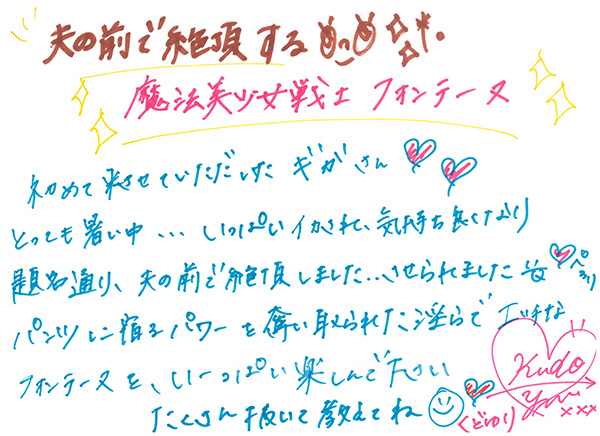 夫の前で絶頂する
魔法美少女戦士 フォンテーヌ
初めて来させていただいた ギガさん
とっても暑い中... いっぱいイかされて、気持ち良くなり
題名通り、夫の前で絶頂しました...させられました
パンツに宿るパワーを奪い取られた淫らでエッチな
フォンテーヌを、いーっぱい楽しんで下さい
たくさん抜いて教えてね
Kudo
xxx